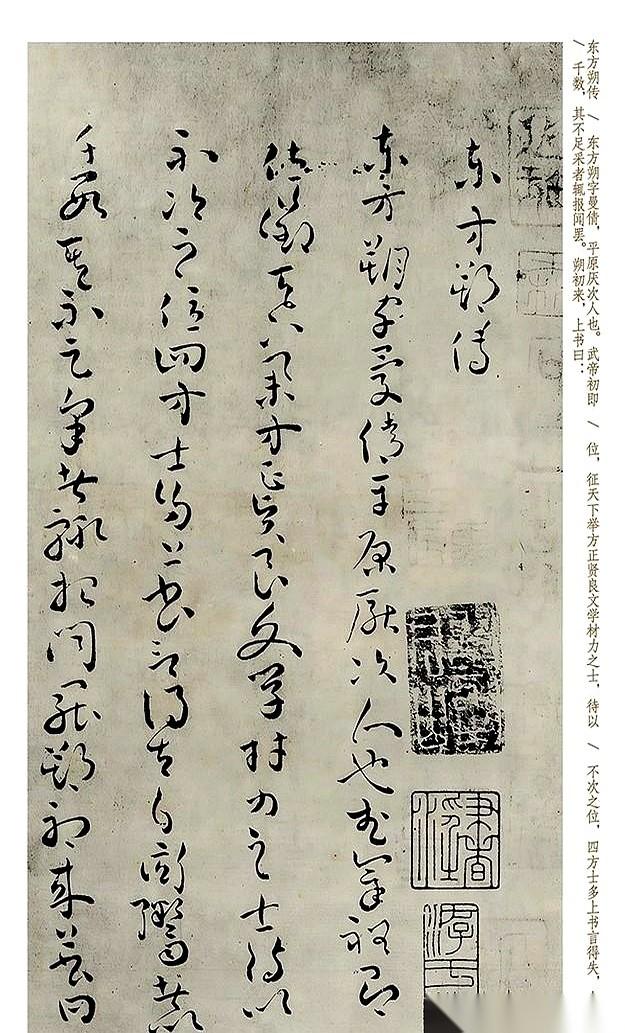 东方朔传 / 东方朔字曼倩，平原厌次人也。武帝初即 / 位，征天下举方正贤良文学材力之士，待以 / 不次之位，四方士多上书言得失，
/ 千数，其不足采者辄报闻罢。朔初来，上书曰：
東方朔傳
東方朔字曼倩平原厭次人也武帝初即
位徵天下舉方正賢良文學材力之士待以
不次之位四方士多上書言得失自衒鬻者以
千數其不足采者輒報聞罷朔初来上書曰